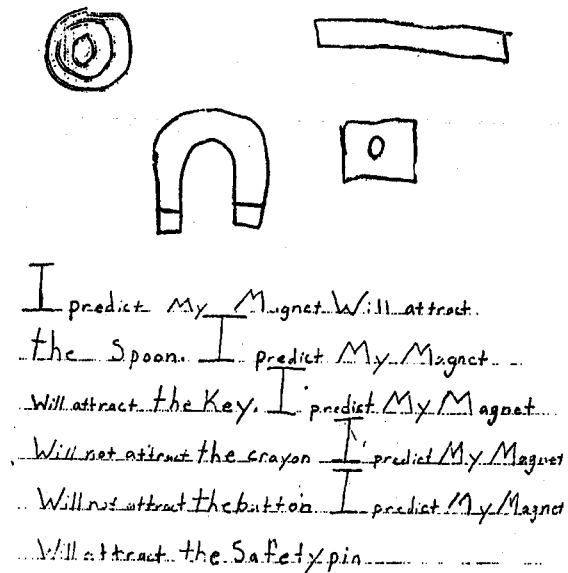 I predict My Magnet Will attract
the Spoon. I predict My Magnet
Will attract the Key. I predict My Magnet
Will not attract the crayon I predict My Magnet
Will not attract the button I predict My Magnet
Will attract the Safety pin